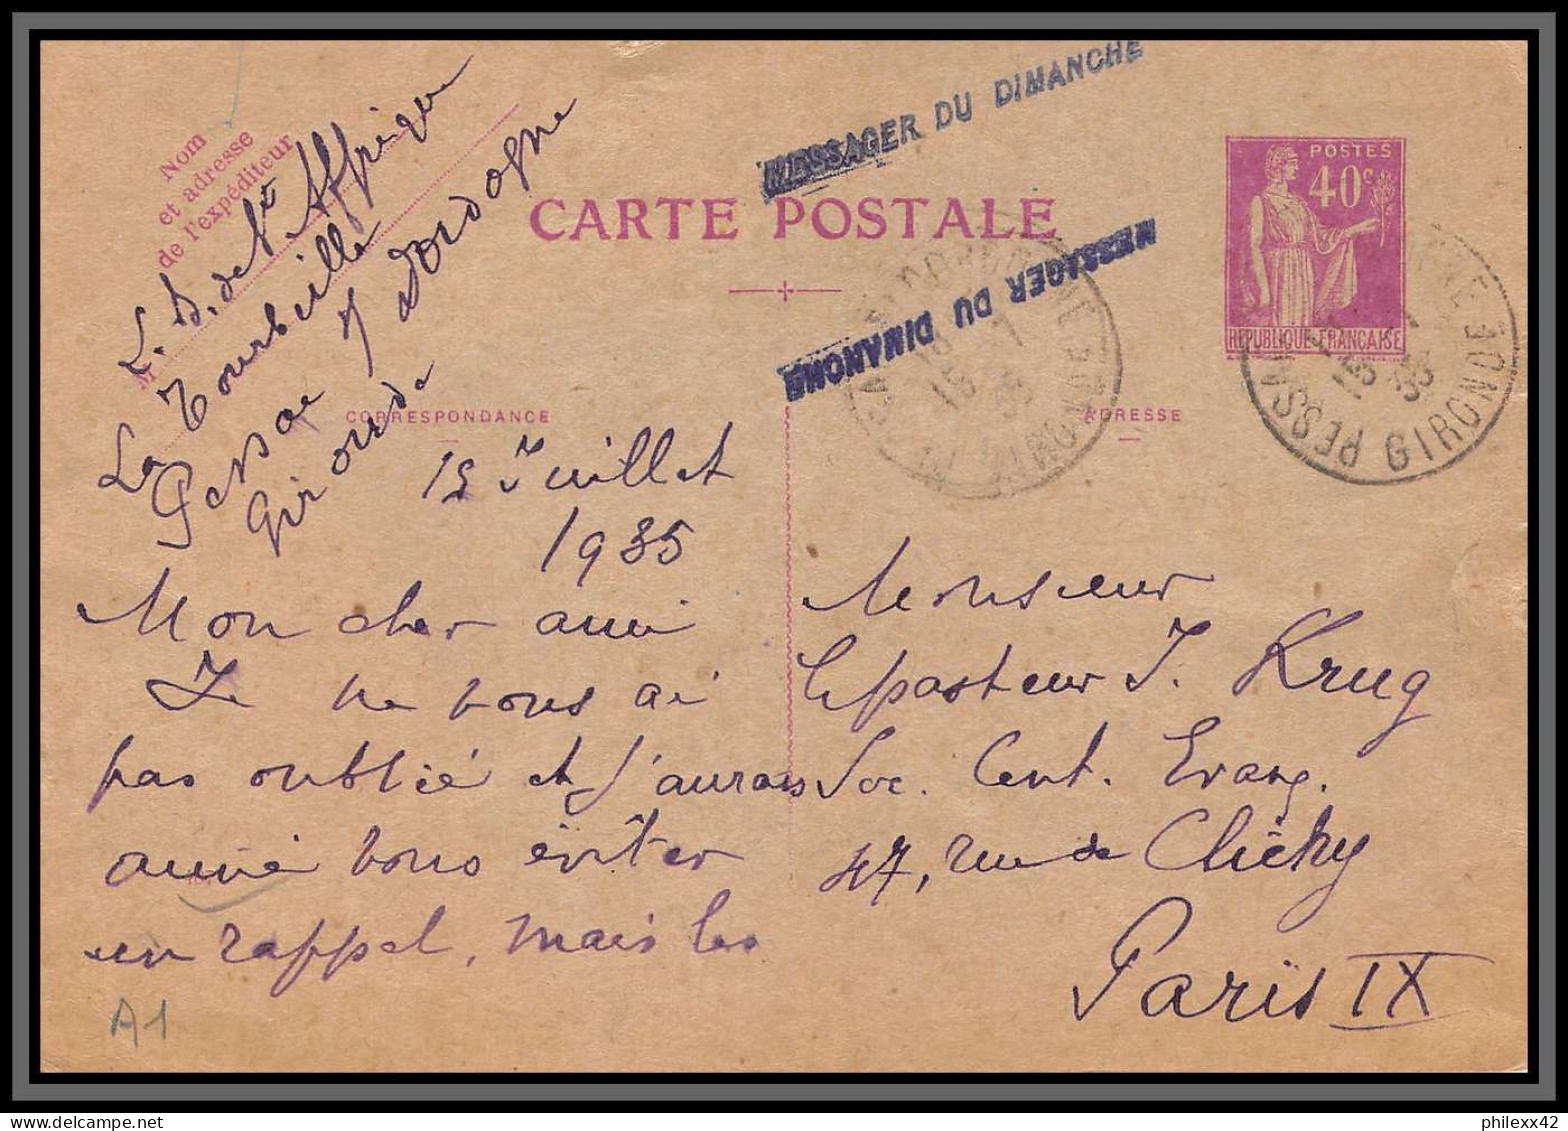 Nom
et adresse
de l'expéditeur
L. D. de St Affrique
Tourbeille
La
Pessac s/ Dordogne
Gironde
MESSAGER DU DIMANCHE
CARTE POSTALE
MESSAGER DU DIMANCHE
POSTES
40c
REPUBLIQUE FRANÇAISE
PESSAC GIRONDE
CORRESPONDANCE
ADRESSE
15 Juillet
1935
Mon cher ami
Je ne vous ai
pas oublié et j'aurais
aimé vous éviter
un rappel, mais les
Monsieur
le pasteur J. Krug
Soc. Cent. Evang.
47, rue de Clichy
Paris IX
A1
philexx42